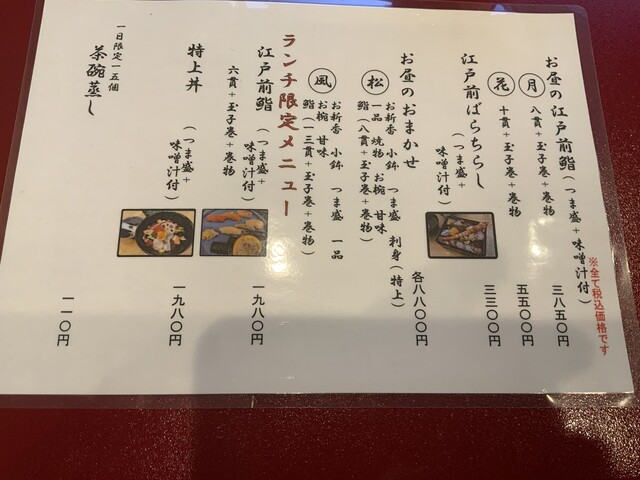 お昼の江戸前鮨（つま盛＋味噌汁付）
※全て税込価格です
月 八貫＋玉子巻＋巻物 三八五〇円
花 十貫＋玉子巻＋巻物 五五〇〇円
江戸前ばらちらし（つま盛＋
味噌汁付） 三三〇〇円
お昼のおまかせ 各八八〇〇円
松 お新香 小鉢 つま盛 刺身（特上）
一品 焼物 お椀 甘味
鮨（八貫＋玉子巻＋巻物）
風 お新香 小鉢 つま盛 一品
お椀 甘味
鮨（一三貫＋玉子巻＋巻物）
ランチ限定メニュー
江戸前鮨（つま盛＋
味噌汁付） 一九八〇円
六貫＋玉子巻＋巻物
特上丼（つま盛＋
味噌汁付） 一九八〇円
一日限定一五個
茶碗蒸し 一一〇円